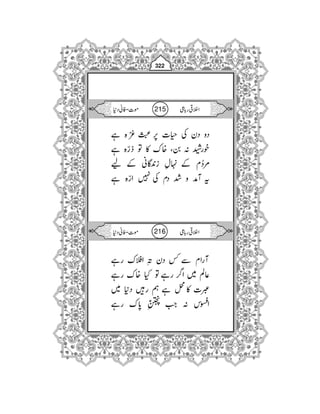 322
اخلاقی رباعی 215 موت-فانی دنیا
دو دن کی حیات پر عبث غرّہ ہے
خورشید نہ بن، خاک کا تو ذرّہ ہے
مردُم کے نہالِ زندگانی کے لیے
یہ آمد و شد دم کی نہیں ارّہ ہے
اخلاقی رباعی 216 موت-فانی دنیا
آرام سے کس دن تہِ افلاک رہے
عالم میں اگر رہے تو کیا خاک رہے
عبرت کا محل ہے ہم رہیں دنیا میں
افسوس نہ جب پنجتنِ پاک رہے